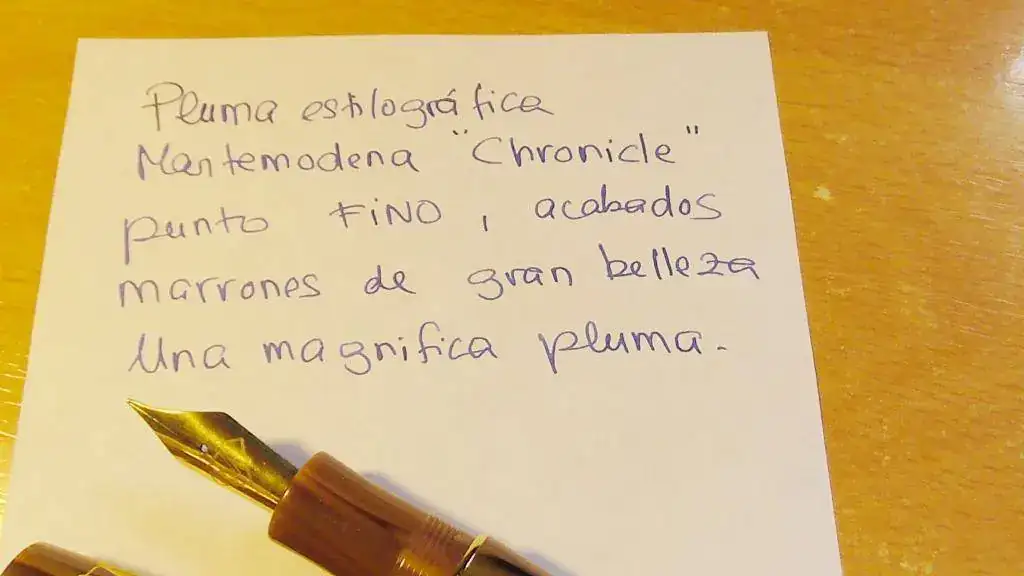 Pluma estilográfica
Mantemodena "Chronicle"
punto FiNO, acabados
marrones de gran belleza
Una magnifica pluma.